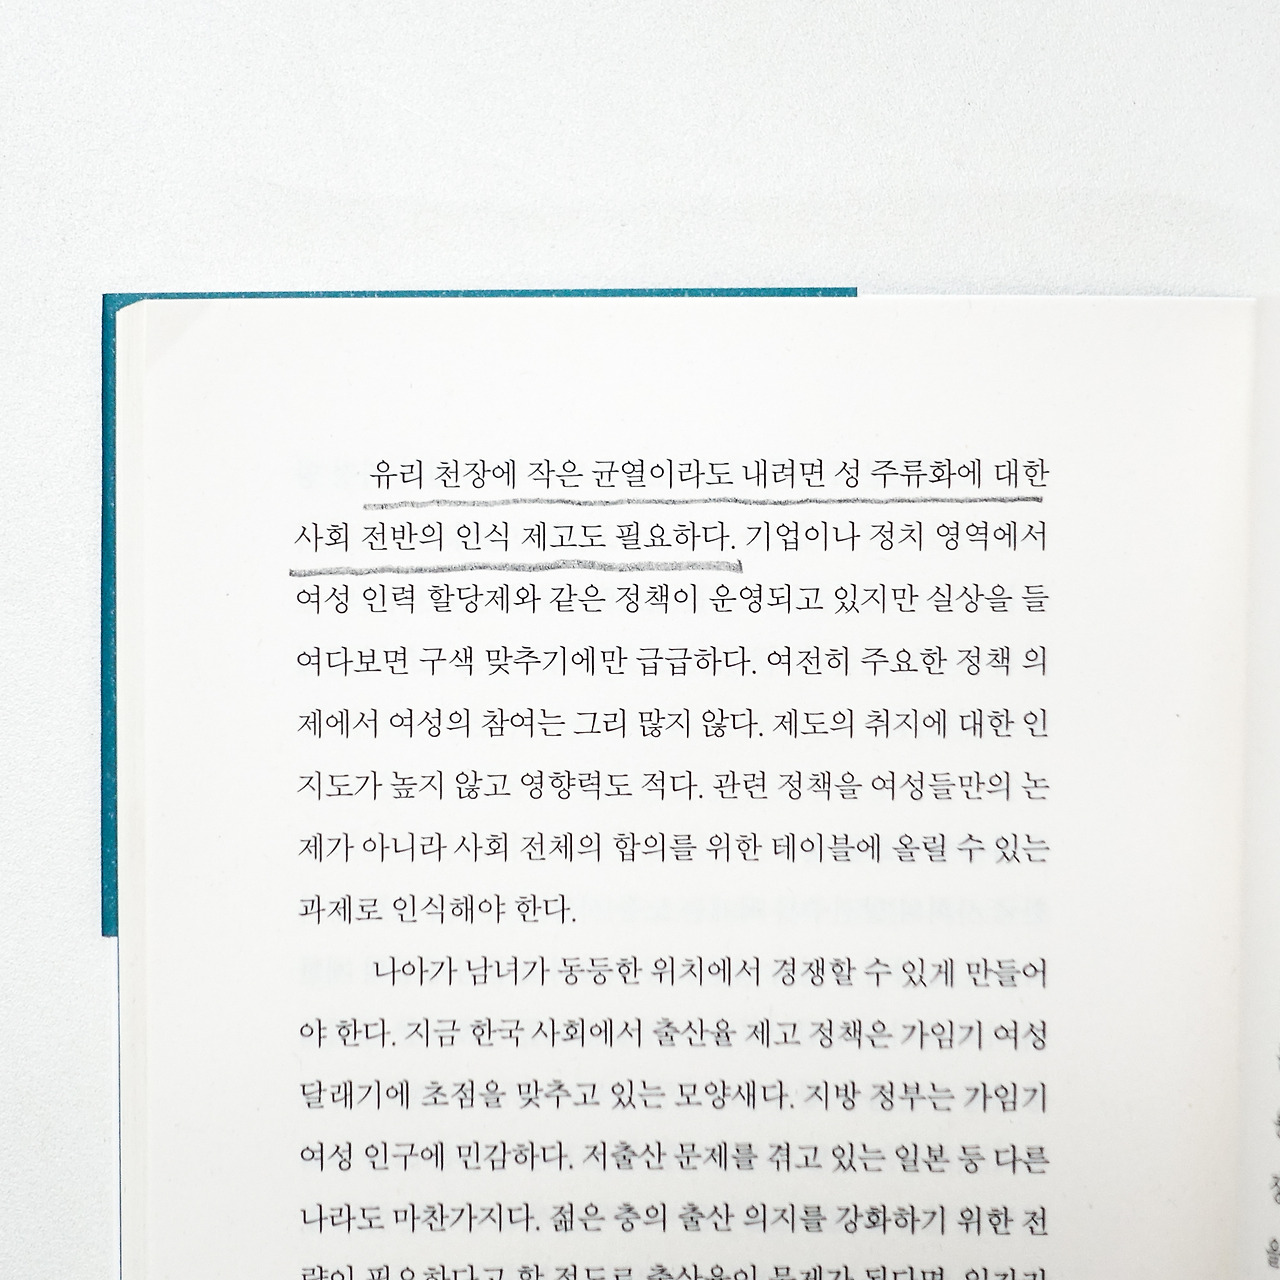 유리 천장에 작은 균열이라도 내려면 성 주류화에 대한
사회 전반의 인식 제고도 필요하다. 기업이나 정치 영역에서
여성 인력 할당제와 같은 정책이 운영되고 있지만 실상을 들
여다보면 구색 맞추기에만 급급하다. 여전히 주요한 정책 의
제에서 여성의 참여는 그리 많지 않다. 제도의 취지에 대한 인
지도가 높지 않고 영향력도 적다. 관련 정책을 여성들만의 논
제가 아니라 사회 전체의 합의를 위한 테이블에 올릴 수 있는
과제로 인식해야 한다.
나아가 남녀가 동등한 위치에서 경쟁할 수 있게 만들어
야 한다. 지금 한국 사회에서 출산율 제고 정책은 가임기 여성
달래기에 초점을 맞추고 있는 모양새다. 지방 정부는 가임기
여성 인구에 민감하다. 저출산 문제를 겪고 있는 일본 등 다른
나라도 마찬가지다. 젊은 층의 출산 의지를 강화하기 위한 전
략이 필요하다고 할 정도로 출산율이 문제가 된다면